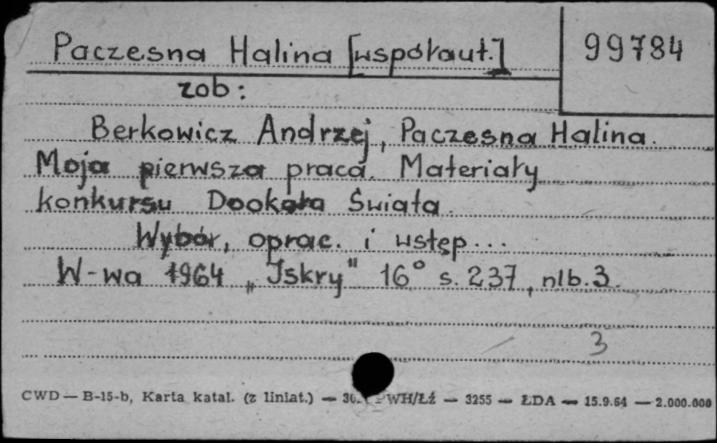 Paczesna Halina [współaut.]
99784
zob:
Berkowicz Andrzej, Paczesna Halina.
Moja pierwsza praca. Materiały
konkursu Dookoła Świata.
Wybór, oprac. i wstęp...
W-wa 1964 „Iskry" 16° s. 237, nlb. 3.
3
CWD — B-15-b, Karta katal. (z liniat.) — PWH/Łź — 3255 — ŁDA — 15.9.64 — 2.000.000